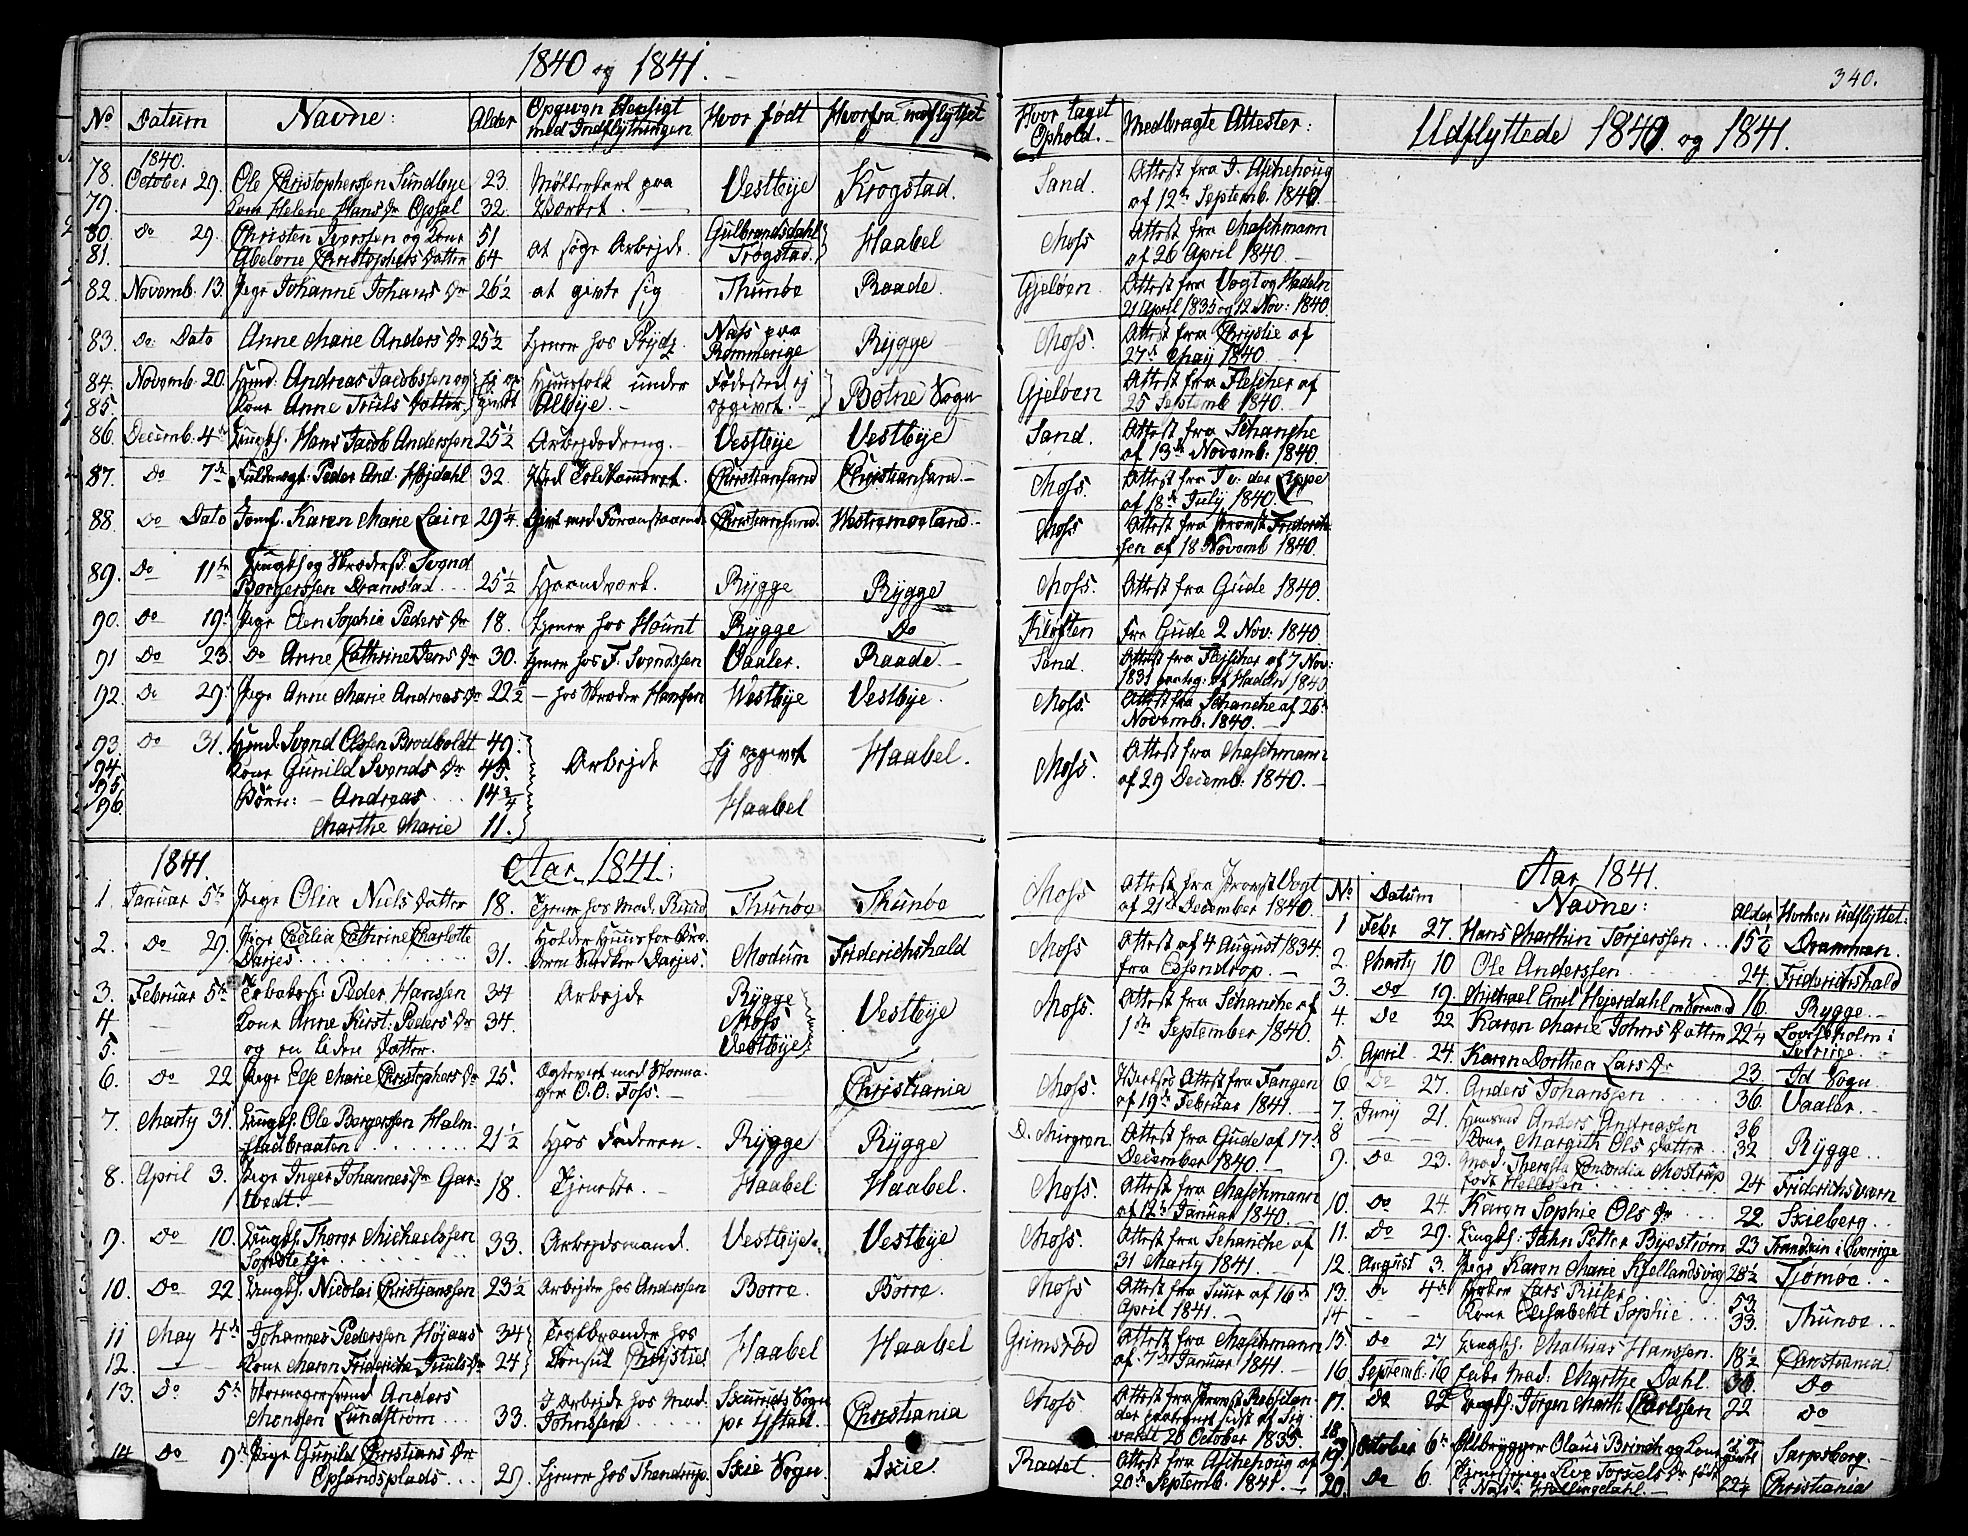 1840 og 1841.
No Datum Navne: Alder Opgiven Hensigt med Indflytningen Hvor født Hvorfra indflyttet
1840.
78. October 29. Ole Christophersen Sundbye 23. Vestbye Krogstad.
79. Kone Helene Hans Dr Opsal 32.
80 Do 29. Christen Iversen og Kone 51 at søge Arbejde Gulbrandsdahl Haabel
81. Abelone Christophers Datter 64 Trøgstad.
82. Novemb. 13. Pige Johanne Johans Dr 26½ at givte sig Thunøe Raade.
83. Do. Dato Anne Marie Anders Dr 25½ tjener hos Prydz Næs paa Rommerige Rygge
84. Novemb. 20. Hmd: Andreas Jacobsen og Huusfolk under Fødested ej Botne Sogn
85. Kone Anne Truls Datter Albye. opgivet.
86. Decemb. 4de Ungks. Hans Jacob Anderssen 25½ Arbejdsdreng. Vestbye Vestbye
87. Do 7de Fuldmægt: Peder And: Højdahl 32. Ved Toldkammeret. Christiansand Christiansand.
88. Do Dato Jomf. Karen Marie Laire 29¼ Givt med Foranstaaende Christiansand. Westremoeland.
89. Do 11te Ungks og Skrædersd. Svend Borgerssen Dramstad 25½ Haandværk. Rygge Rygge
90. Do 19de Pige Elen Sophie Peders Dr 18. tjener hos Hount Rygge Do
91 Do 23. Do Anne Cathrine Jens Dr 30. tjener hos F. Svendssen Vaaler. Raade.
92. Do 29. Pige Anne Marie Andreas Dr 22½ hos Skræder Hansen Westbye Vestbye.
93. Do 31. Hmd. Svend Olsen Brodholdt 49. Arbejde Ej opgivet Haabel.
94. Kone Gunild Svends Dr 45.
95. Børn: Andreas 14¾ Haabel
96. Marthe Marie 11.
1841. Aar 1841:
1. Januar 5te Pige Olia Niels Datter 18. Tjener hos Mad. Thunøe Thunøe
2. Do 29. Pige Cecilia Cathrine Charlotte Darjes 31. Holder Huus for Broderen Darjes. Modum Friderichshald
3. Februar 5te Peder Hanssen 34 Arbejde Rygge Vestbye
4 — Kone Anne Kirst: Peders Dr 34. Moss
5. — og en liden Datter. Vestbye
6. Do 22 Pige Else Marie Christophers Dr 25. Ægteviet med Skomager O. O. Foss. Christiania
7. Marty 31. Ungks. Ole Borgerssen Halmstadbraaten 21½ Hos Faderen. Rygge Rygge
8. April 3. Pige Inger Johannes Dr Gartvedt. 18. Tjeneste. Haabel Haabel.
9. Do 10. Ungks. Thorer Michaelssen 33. Arbejdsmand. Vestbye. Vestbye
10. Do 22 Ungks. Nicolai Christjanssen 23½ Arbejder hos Anderssen Borre. Borre.
11 May 4de Johannes Pedersen Højaas 34 Teglbrænder hos Haabel Haabel
12. — Kone Maren Friderikke Juuls Dr 24 Consul Chrystie
13. Do 5te Skomagersvend Anders Monsen Lundstrøm 33. I Arbejde hos Mad. Johnssen Sogn pr Ystad. Christiania
14. Do 9de Pige Gunild Christians Dr Opsandsplads 29. tjener hos Thendrup. Skie Sogn Skie.
340.
Hvor taget Ophold. Medbragte Attester: Udflyttede 1840. og 1841.
Sand. Attest fra J. Aschehoug
af 12te Septemb. 1840.
Moss Attest fra Maschmann
af 26 April 1840.
Gjeløen Attest fra Vogt og Hadeln
21 April 1835 og 12 Nov: 1840.
Moss. Attest fra Chrystie af
27de May 1840
Gjeløen Attest fra Fleischer af
25 Septemb 1840.
Sand. Attest fra Schanche
af 13de Novemb. 1840.
Moss. Attest fra J. v: der Lippe
af 18de July 1840.
Moss Attest fra Provst Friderichsen af 18 Novemb 1840.
Moss. Attest fra Gude 1840.
Kløften fra Gude 2 Nov: 1840
Sand. Attest fra Flejscher af 7 Nov:
1831 paateg. af Hadeln 1840
Moss. Attest fra Schanche af 26de
Novemb. 1840.
Moss. Attest fra Maschmann
af 29 Decemb. 1840.
Moss Attest fra Provst Vogt
af 21de December 1840.
Moss Attest af 4 August 1834.
fra Essendrop.
Moss. Attest fra Schanche af
1ste September 1840.
Moss. Attest fra Fangen
af 19de Februar 1841.
Attest fra Gude af 17de
December 1840.
Moss. Attest fra Maschmann
af 12te Januar 1840.
Moss. Attest fra Schanche af
31 Marty 1841.
Moss Attest fra af 16de
April 1841.
Grimsrød Attest fra Maschmann
af 7de Januar 1841.
Moss Attest fra Provst
20 October 1835.
Attest fra Aschehoug af
20de Septemb. 1841.
Aar 1841.
No Datum Navne: Alder Hvorhen udflyttet:
1 Febr 27. Hans Marthin Torjerssen 15½ Drammen.
2. Marty 10 Ole Anderssen 24. Friderichshald
3. Do 19. Michael Emil Hejerdahl 16. Rygge.
4. Do 22 Karen Marie Johns Datter 22¼ i Sverige.
5. April 24. Karen Dorthea Lars Dr 23 Id Sogn
6 Do 27. Anders Johanssen 36. Vaaler.
7. Juny 21. Huusmd Anders Andreassen 36 Rygge
8 — Kone Margith Ols Datter 32
9. Do 23. Mad: Therese Concordia Mostrup født Hellesen 24 Friderichsværn
10. Do 24. Karen Sophie Ols Dr 22. Skieberg.
11. Do 29. Ungks: John Petter Byestrøm 23 i Sverrige
12. August 3. Pige Karen Marie Kjellandsvig 28½ Tjømøe.
13. Do 4de Lars 53. Thunøe.
14 — Kone Elisabeth Sophie 33.
15. Do 27 Ungks. Mathias Hanssen. 18½ Christiania
16 Septemb. 16 Mad: Marthe Dahl. 36 Do
17. Do 22 Ungks. Jørgen Marth: Carlssen 22 Do
18. 19. October 6te Ølbrygger Olaus Brinch og Kone Sarpsborg.
20. Do 6. Tjenestepige Live Torkels Dr født i Næs i Hallingdahl. 22¼ Christiania